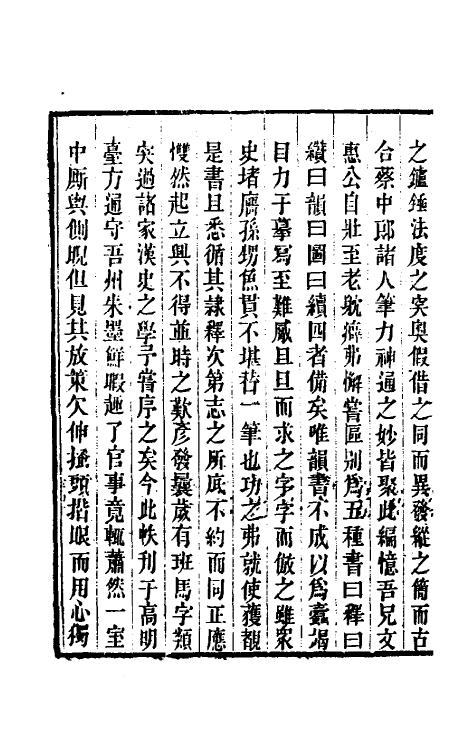 之鑪錘法度之窔奧假借之同而異發縱之簡而古
合蔡中郎諸人筆力神通之妙皆聚此編憶吾兄文
惠公自壯至老躭癖弗懈嘗區別爲五種書曰釋曰
纘曰韻曰圖曰續四者備矣唯韻書不成以爲蠹竭
目力于摹寫至難風且旦而求之字字而倣之雖衆
史堵膺孫甥魚貫不堪替一筆也功之弗就使獲覩
是書且悉循其隸釋次第志之所底不約而同正應
慢然起立興不得並時之歎彥發曩歲有班馬字類
矣過諸家漢史之學予嘗序之矣今此帙刊于高明
臺方通守吾州朱墨鮮暇趣了官事竟輒蕭然一室
中厮與側睨但見其放策欠伸搔頭揩眼而用心獨